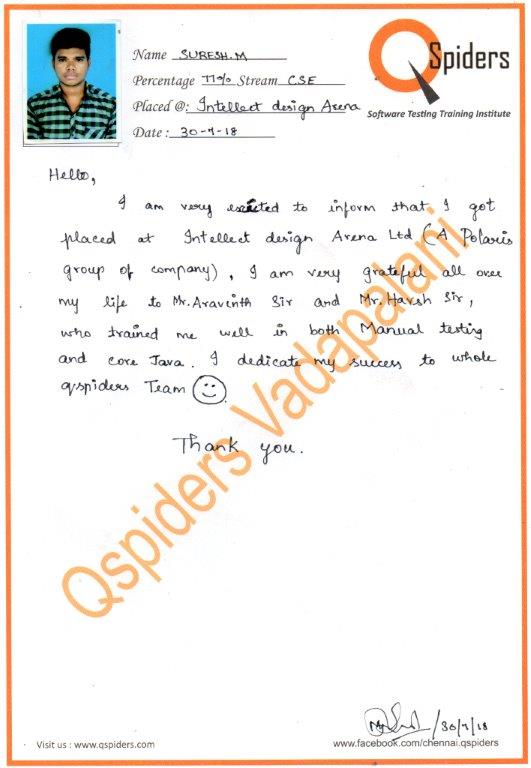 QSpiders
Software Testing Training Institute
Name SURESH.M
Percentage 77% Stream CSE
Placed @: Intellect design Arena
Date : 30-7-18
Hello,
I am very exicted to inform that I got
placed at Intellect design Arena Ltd (A Polaris
group of company), I am very grateful all over
my life to Mr.Aravinth Sir and Mr.Harsh Sir,
who trained me well in both Manual testing
and core Java. I dedicate my success to whole
qspiders Team
Thank you.
Qspiders Vadapalani
30/7/18
Visit us : www.qspiders.com
www.facebook.com/chennai.qspiders